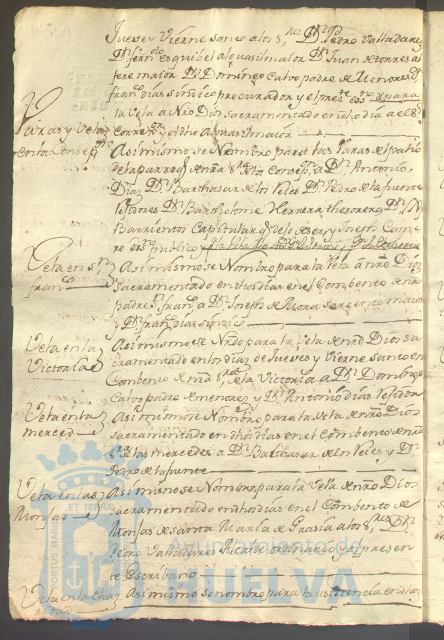 Jueves y Vierne santo a los s.res Dn Pedro Valladares
Dn fern.do esquibel alguasil maior Dn Juan de torres al
feres maior Dn Domingo Calvo padre de Menores Dn
fran.co dias sindico procurador y el pres.te es.no
la Vela a Nro Dios sacramentado en dho dia
y el dho Alguasil maior
Varas y Vela
en la Consep.on
Asimismo se Nombro para las Varas del patio
de la parroq.a de nra s.ra de la Consep.on a Dn Antonio
Dias Dn Balthasar de los Veles Dn Pedro de la fuente
Rejidores Dn Bartholome Herrera thesorero Dn
Barrientos Capitular y Joseph
es.no publico
Vela en Sn
fran.co
Asimismo se Nombro para la Vela a nro Dios
Sacramentado en dhos dias en el Combento de nro
padre Sn fran.co a Dn Joseph de
y Dn fran.co dias sindico
Vela en la
Victoria
Asimismo se Nro para la Vela de nro Dios sa
cramentado en los dias de Jueves y Vierne santo en
Combento de nra s.ra de la Victoria a Dn Domingo
Calvo padre de menores y Dn Antonio dias Rejidor
Vela en la
merced
Asimismo se Nombro para la Vela de nro Dios
sacramentado en dhos dias en el Combento de nra
s.ra de las mercedes a Dn Balthasar de los Veles y Dn
Pedro de la fuente
Vela en las
Monjas
Asimismo se Nombro para la Vela de nro Dios
sacramentado en dhos dias en el Combento de
Monjas de santa Maria de Grasia a los s.res Dn
Pedro Valladares Alcalde ordinario y el presen
te Escribano
Vela en la
Asimismo se nombro para la asistencia en dho
PORTUS MARIS ET TERRAE
Ayuntamiento de
HUELVA